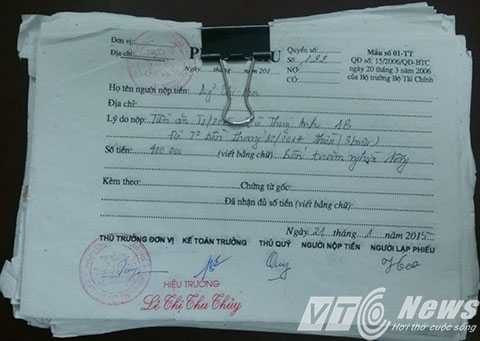 Đơn vị:
Địa chỉ:
Quyển số:
Số:
Mẫu số 01-TT
QĐ số: 15/2006/QĐ-BTC
ngày 20 tháng 3 năm 2006
của Bộ trưởng Bộ Tài Chính
Ngày tháng năm 201
NỢ
CÓ
Họ tên người nộp tiền:
Địa chỉ:
Lý do nộp: Tiền ăn Thùy Anh
Số tiền: 400.000 (viết bằng chữ) bốn trăm nghìn đồng
Kèm theo: Chứng từ gốc:
Đã nhận đủ số tiền (viết bằng chữ)
Ngày 21 tháng 1 năm 2015
THỦ TRƯỞNG ĐƠN VỊ KẾ TOÁN TRƯỞNG THỦ QUỸ NGƯỜI NỘP TIỀN NGƯỜI LẬP PHIẾU
Quy Hoa
HIỆU TRƯỞNG
Lê Thị Thu Thủy
VTC News
Hơi thở cuộc sống